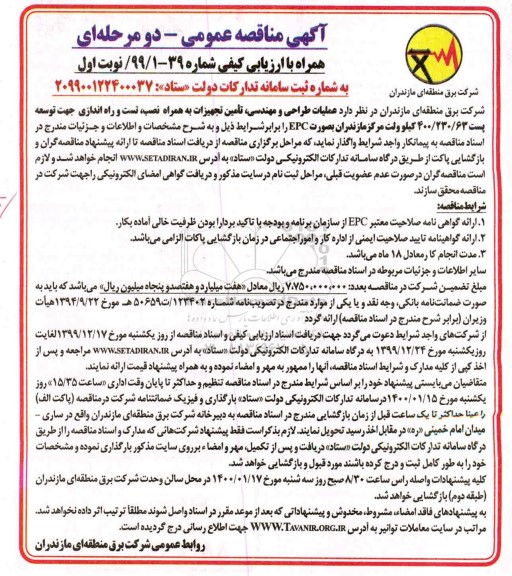 آگهی مناقصه عمومی - دو مرحله‌ای
همراه با ارزیابی کیفی شماره ۳۹-۹۹/۱/ نوبت اول
به شماره ثبت سامانه تدارکات دولت «ستاد»: ۲۰۹۹۰۰۱۲۲۴۰۰۰۳۷
شرکت برق منطقه‌ای مازندران
شرکت برق منطقه‌ای مازندران در نظر دارد عملیات طراحی و مهندسی، تأمین تجهیزات به همراه نصب، تست و راه اندازی جهت توسعه
پست ۴۰۰/۲۳۰/۶۳ کیلو ولت مرکز مازندران بصورت EPC را برابر شرایط ذیل و به شرح مشخصات و اطلاعات و جزئیات مندرج در
اسناد مناقصه به پیمانکار واجد شرایط واگذار نماید، که مراحل برگزاری مناقصه از دریافت اسناد مناقصه تا ارائه پیشنهاد مناقصه گران و
بازگشایی پاکت از طریق درگاه سامانه تدارکات الکترونیکی دولت «ستاد» به آدرس WWW.SETADIRAN.IR انجام خواهد شد و لازم
است مناقصه گران درصورت عدم عضویت قبلی، مراحل ثبت نام در سایت مذکور و دریافت گواهی امضای الکترونیکی را جهت شرکت در
مناقصه محقق سازند.
شرایط مناقصه:
۱. ارائه گواهی نامه صلاحیت معتبر EPC از سازمان برنامه و بودجه با تاکید بر دارا بودن ظرفیت خالی آماده بکار.
۲. ارائه گواهینامه تایید صلاحیت ایمنی از اداره کار و امور اجتماعی در زمان بازگشایی پاکات الزامی می‌باشد.
۳. مدت انجام کار معادل ۱۸ ماه می‌باشد.
سایر اطلاعات و جزئیات مربوطه در اسناد مناقصه مندرج می‌باشد.
مبلغ تضمین شرکت در مناقصه بعدد: ۷،۷۵۰،۰۰۰،۰۰۰ ریال معادل «هفت میلیارد و هفتصد و پنجاه میلیون ریال» می‌باشد که باید به
صورت ضمانت‌نامه بانکی، وجه نقد و یا یکی از موارد مندرج در تصویب‌نامه شماره ۱۲۳۴۰۲/ت۵۰۶۵۹ هـ مورخ ۱۳۹۴/۹/۲۲ هیأت
وزیران (برابر شرح مندرج در اسناد مناقصه) ارائه گردد.
از شرکت‌های واجد شرایط دعوت می‌گردد جهت دریافت اسناد ارزیابی کیفی و اسناد مناقصه از روز یکشنبه مورخ ۱۳۹۹/۱۲/۱۷ لغایت
روز یکشنبه مورخ ۱۳۹۹/۱۲/۲۴ به درگاه سامانه تدارکات الکترونیکی دولت «ستاد» به آدرس WWW.SETADIRAN.IR مراجعه و پس از
اخذ کپی از کلیه مدارک و شرایط اسناد مناقصه، آنها را ممهور به مهر و امضاء نموده و به همراه پیشنهاد قیمت ارائه نمایند.
متقاضیان می‌بایستی پیشنهاد خود را بر اساس شرایط مندرج در اسناد مناقصه تنظیم و حداکثر تا پایان وقت اداری «ساعت ۱۵/۳۵» روز
یکشنبه مورخ ۱۴۰۰/۰۱/۱۵ در سامانه تدارکات الکترونیکی دولت «ستاد» بارگذاری و فیزیک ضمانتنامه شرکت در مناقصه (پاکت الف)
را عینا حداکثر تا یک ساعت قبل از زمان بازگشایی مندرج در اسناد مناقصه به دبیرخانه شرکت برق منطقه‌ای مازندران واقع در ساری -
میدان امام خمینی «ره» در مقابل اخذ رسید تحویل نمایند. لازم بذکر است فقط پیشنهاد شرکت‌هائی که مدارک و اسناد مناقصه را از طریق
درگاه سامانه تدارکات الکترونیکی دولت «ستاد» دریافت و پس از تکمیل، مهر و امضاء بر روی سایت مذکور بارگذاری نموده و مشخصات
خود را به طور کامل ثبت و درج کرده باشند مورد قبول و بازگشایی خواهد شد.
کلیه پیشنهادات واصله راس ساعت ۸/۳۰ صبح روز سه شنبه مورخ ۱۴۰۰/۰۱/۱۷ در محل سالن وحدت شرکت برق منطقه‌ای مازندران
(طبقه دوم) بازگشایی خواهد شد.
به پیشنهادهای فاقد امضاء، مشروط، مخدوش و پیشنهاداتی که بعد از موعد مقرر در اسناد واصل شوند مطلقاً ترتیب اثر داده نخواهد شد.
مراتب در سایت معاملات توانیر به آدرس WWW.TAVANIR.ORG.IR جهت اطلاع رسانی درج گردیده است.
روابط عمومی شرکت برق منطقه‌ای مازندران